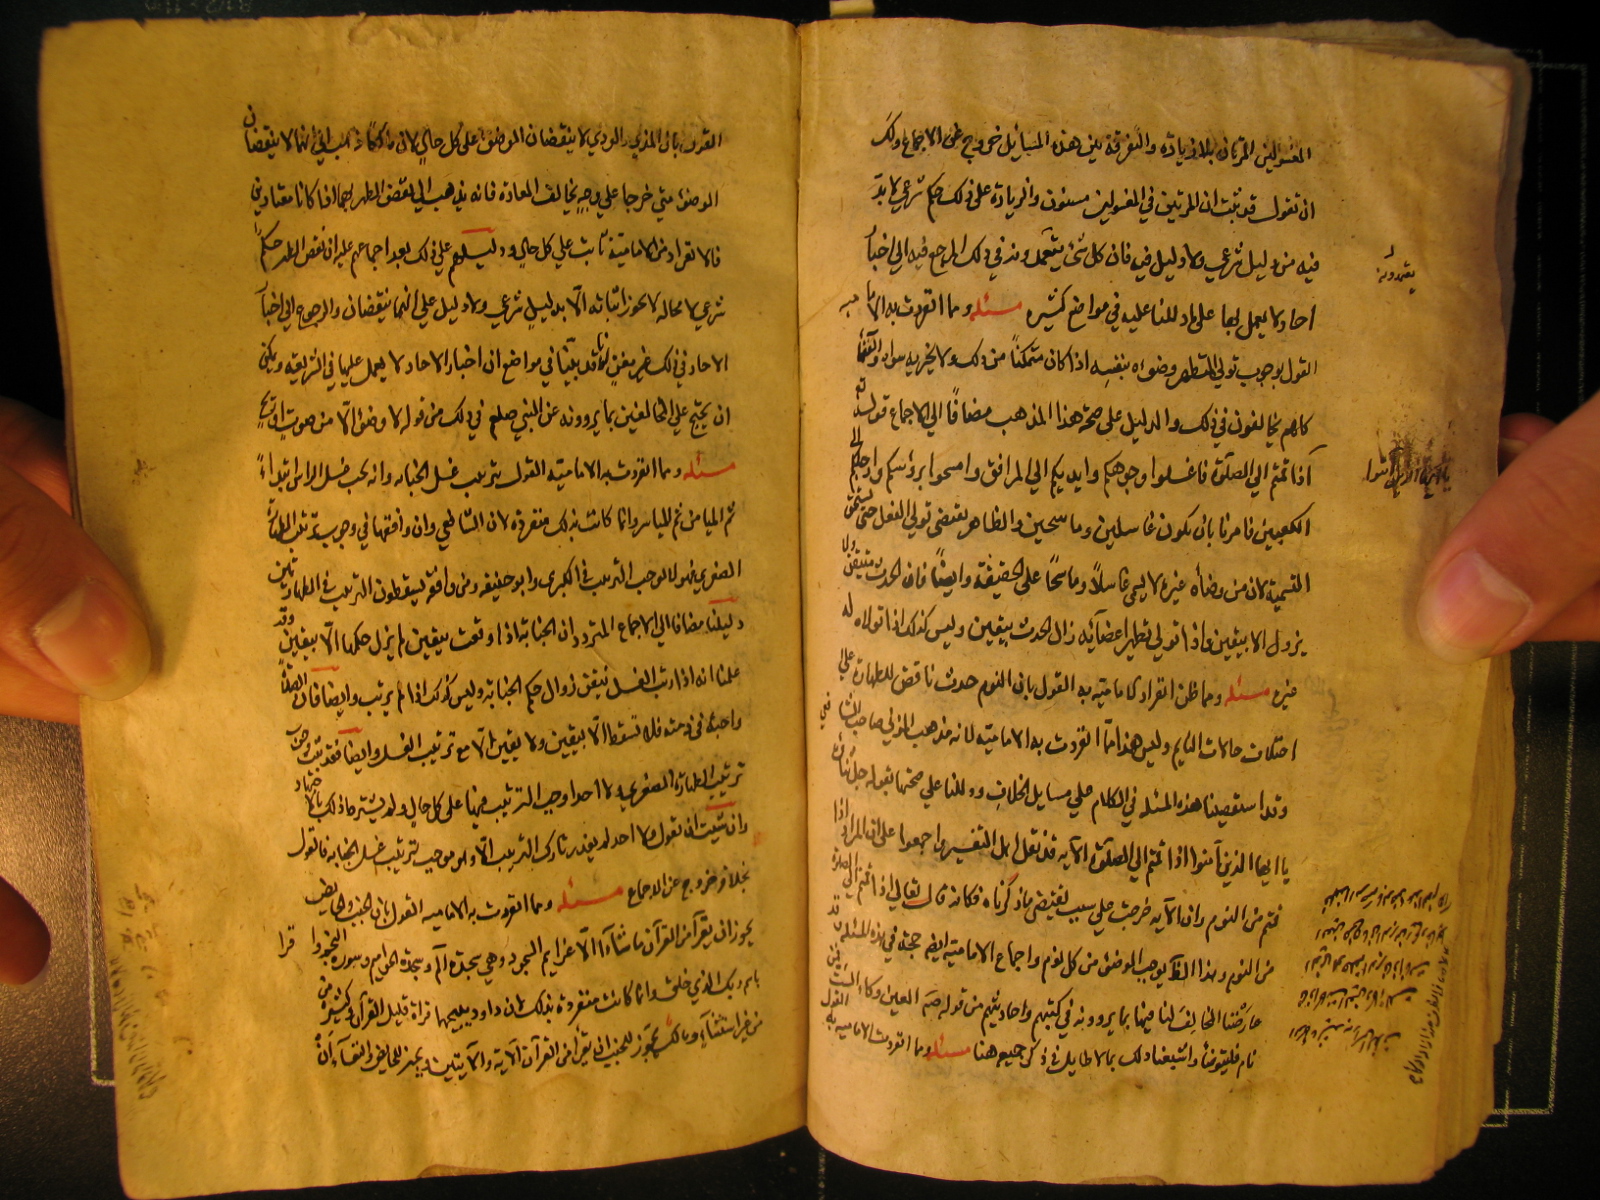 المغسولين المرتان بلا زيادة والتفرقة بين هذه المسايل خروج عن الاجماع ولك
ان تقول قد ثبت ان المرتين في المغسولين مسنون والزيادة على ذلك حكم شرعي لا بد
فيه من دليل شرعي ولا دليل فيه فان كل شئ يتعمل به في ذلك المرجع فيه الى اخبار
احاد ولا يعمل بها على ما دللنا عليه في مواضع كثيرة مسئلة ومما انفردت به الاما
مية
القول بوجوب تولي المتطهر وضوءه بنفسه اذا كان متمكنا من ذلك ولا يجزيه سواه والفقها
كلهم يخالفون في ذلك والدليل على صحة هذا المذهب مضافا الى الاجماع قوله
تع
اذا قمتم الى الصلوة فاغسلوا وجوهكم وايديكم الى المرافق وامسحوا برؤسكم وارجلكم
الى
الكعبين فامرنا بان نكون غاسلين وماسحين والظاهر يقتضي تولي الفعل حتى يستحق
التسمية لان من وضأه غيره لا يسمى غاسلا وماسحا على الحقيقة وايضا فان الحدث متيقن
ولا
يزول الا بيقين واذا تولى تطهير اعضآئه زال الحدث بيقين وليس كذلك اذا تولاه له
غيره مسئلة ومما ظن انفراد الامامية به القول بان النوم حدث ناقض للطهارة على
اختلاف حالات النايم وليس هذا مما انفردت به الامامية لانه مذهب المزني صاحب الشا
فعي
وقد استقصينا هذه المسئلة في الكلام على مسايل الخلاف ودللنا على صحتها بقوله جل ثناؤه
يا ايها الذين آمنوا اذا قمتم الى الصلوة الآية وقد نقل اهل التفسير واجمعوا على ان المراد
اذا
قمتم من النوم وان الآية خرجت على سبب يقتضي ما ذكرناه فكانه قال تعالى اذا قمتم الى الصلوة
من النوم وهذا الظ يوجب الوضوء من كل نوم واجماع الامامية ايضا حجة في هذه المسئلة
وقد
عارضنا المخالف لنا فيها بما يروونه في كتبهم واحاديثهم من قوله صم العين وكاء الست
نام فليتوضأ واشبعنا ذلك بما لا طايل في ذكر جميعه هنا مسئلة ومما انفردت الامامية به
القول
يا ايها الذين آمنوا
القول بان المذي والودي لا ينقضان الوضوء على كل حال لان مالكا يذهب الى انهما لا ينقضان
الوضوء متى خرجا على وجه يخالف العادة فانه يذهب الى نقض الطهر بهما اذا كانا معتادين
فالانفراد من الامامية ثابت على كل حال ودليلهم على ذلك بعد اجماعهم عليه ان نقض الطهر حكم
شرعي لا محالة لا يجوز اثباته الا بدليل شرعي ولا دليل على انهما ينقضان والرجوع الى اخبار
الاحاد في ذلك غير مغن لانا قد بينا في مواضع ان اخبار الاحاد لا يعمل عليها في الشريعة ويمكن
ان يحتج على المخالفين بما يروونه عن النبي صلعم في ذلك من قوله لا وضوء الا من صوت او ريح
مسئلة ومما انفردت به الامامية القول بترتيب غسل الجنابة وانه يجب غسل الراس ابتداءً
ثم الميامن ثم المياسر وانما كانت بذلك منفردة لان الشافعي وان وافقها في وجوب ترتيب الطهارة
الصغرى فهو لا يوجب الترتيب في الكبرى وابو حنيفة ومن وافقه يسقطون الترتيب في الطهار
تين
دليلنا مضافا الى الاجماع المتردد ان الجنابة اذا وقعت بيقين لم يزل حكمها الا بيقين
وقد
علمنا انه اذا رتب الغسل تيقن زوال حكم الجنابة وليس كذلك اذا لم يرتب وايضا فان الصلوة
واجبة في ذمته فلا تسقط الا بيقين ولا يقين الا مع ترتيب الغسل وايضا فقد ثبت وجوب
ترتيب الطهارة الصغرى ولا احد اوجب الترتيب فيها على كل حال ولم يشترط ذلك بالا
جتهاد
وان شئت ان تقول ولا احد لم يعذر تارك الترتيب الا وهو موجب لترتيب غسل الجنابة فالقول
بخلافه خروج عن الاجماع مسئلة ومما انفردت به الامامية القول بان الجنب والحايض
يجوز ان يقرآ من القرآن ما شاءآ الا عزايم السجود وهي سجدة الم وسجدة الحواميم وسورة النجم
واقرا
باسم ربك الذي خلق وانما كانت منفردة بذلك لان داود يبيحهما قراة قليل القرآن وكثيره
من غير استثناء ومالك يجوز للجنب ان يقرأ من القرآن الآية والآيتين ويجيز للحايض والنفساء ان